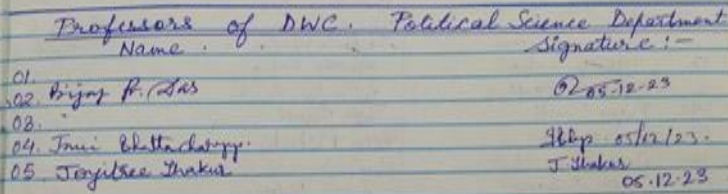 Professors of DWC. Political Science Department
Name. Signature:-
01.
02. Bijay P. Das 05-12-23
03.
04. Bhattacharyy. 05/12/23.
05 Thakur J. Thakur
05.12.23